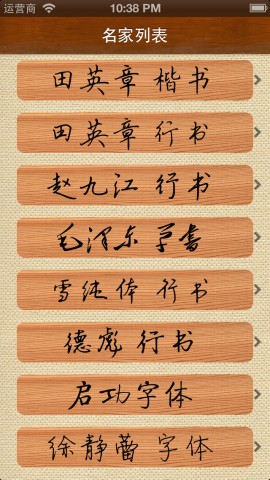 运营商 10:38 PM
名家列表
田英章 楷书
田英章 行书
赵九江 行书
毛泽东 草书
雪纯体 行书
德彪 行书
启功字体
徐静蕾 字体